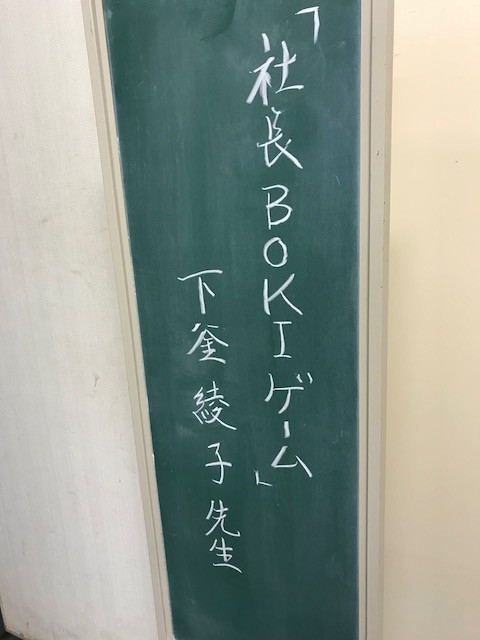 「社長BOKIゲーム」
下釜綾子先生